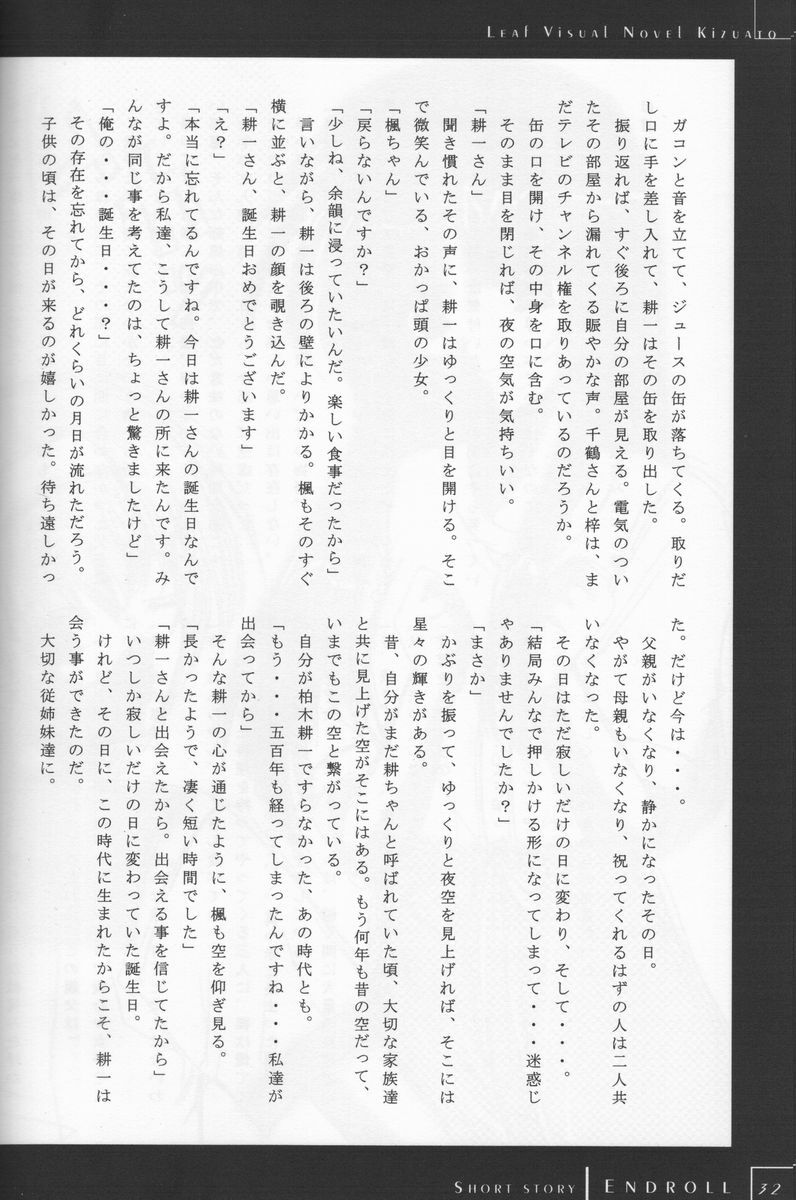 LEAF VISUAL NOVEL KIZUATO
ガコンと音を立てて、ジュースの缶が落ちてくる。取りだ
し口に手を差し入れて、耕一はその缶を取り出した。
振り返れば、すぐ後ろに自分の部屋が見える。電気のつい
たその部屋から漏れてくる賑やかな声。千鶴さんと梓は、ま
だテレビのチャンネル権を取りあっているのだろうか。
缶の口を開け、その中身を口に含む。
そのまま目を閉じれば、夜の空気が気持ちいい。
「耕一さん」
聞き慣れたその声に、耕一はゆっくりと目を開ける。そこ
で微笑んでいる、おかっぱ頭の少女。
「楓ちゃん」
「戻らないんですか？」
「少しね、余韻に浸っていたいんだ。楽しい食事だったから」
言いながら、耕一は後ろの壁によりかかる。楓もそのすぐ
横に並ぶと、耕一の顔を覗き込んだ。
「耕一さん、誕生日おめでとうございます」
「え？」
「本当に忘れてるんですね。今日は耕一さんの誕生日なんで
すよ。だから私達、こうして耕一さんの所に来たんです。み
んなが同じ事を考えてたのは、ちょっと驚きましたけど」
「俺の・・・誕生日・・・？」
その存在を忘れてから、どれくらいの月日が流れただろう。
子供の頃は、その日が来るのが嬉しかった。待ち遠しかっ
た。だけど今は・・・。
父親がいなくなり、静かになったその日。
やがて母親もいなくなり、祝ってくれるはずの人は二人共
いなくなった。
その日はただ寂しいだけの日に変わり、そして・・・。
「結局みんなで押しかける形になってしまって・・・迷惑じ
ゃありませんでしたか？」
「まさか」
かぶりを振って、ゆっくりと夜空を見上げれば、そこには
星々の輝きがある。
昔、自分がまだ耕ちゃんと呼ばれていた頃、大切な家族達
と共に見上げた空がそこにはある。もう何年も昔の空だって、
いまでもこの空と繋がっている。
自分が柏木耕一ですらなかった、あの時代とも。
「もう・・・五百年も経ってしまったんですね・・・私達が
出会ってから」
そんな耕一の心が通じたように、楓も空を仰ぎ見る。
「長かったようで、凄く短い時間でした」
「耕一さんと出会えたから。出会える事を信じてたから」
いつしか寂しいだけの日に変わっていた誕生日。
けれど、その日に、この時代に生まれたからこそ、耕一は
会う事ができたのだ。
大切な従姉妹達に。
SHORT STORY ENDROLL 32